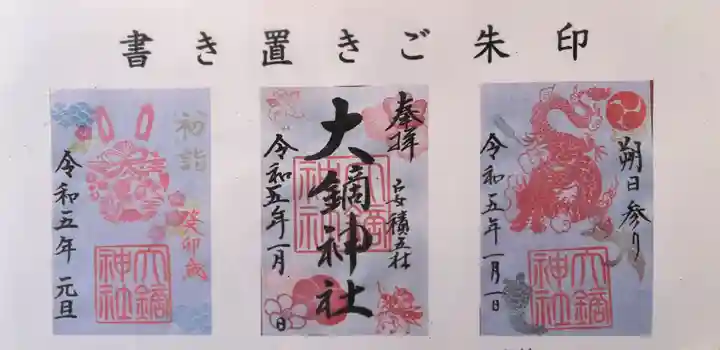 書き置きご朱印
初詣
癸卯歳
令和五年 元旦
大鏑神社
奉拝
安積五社
大鏑神社
令和五年一月 日
朔日参り
大鏑神社
令和五年一月一日
大鏑神社